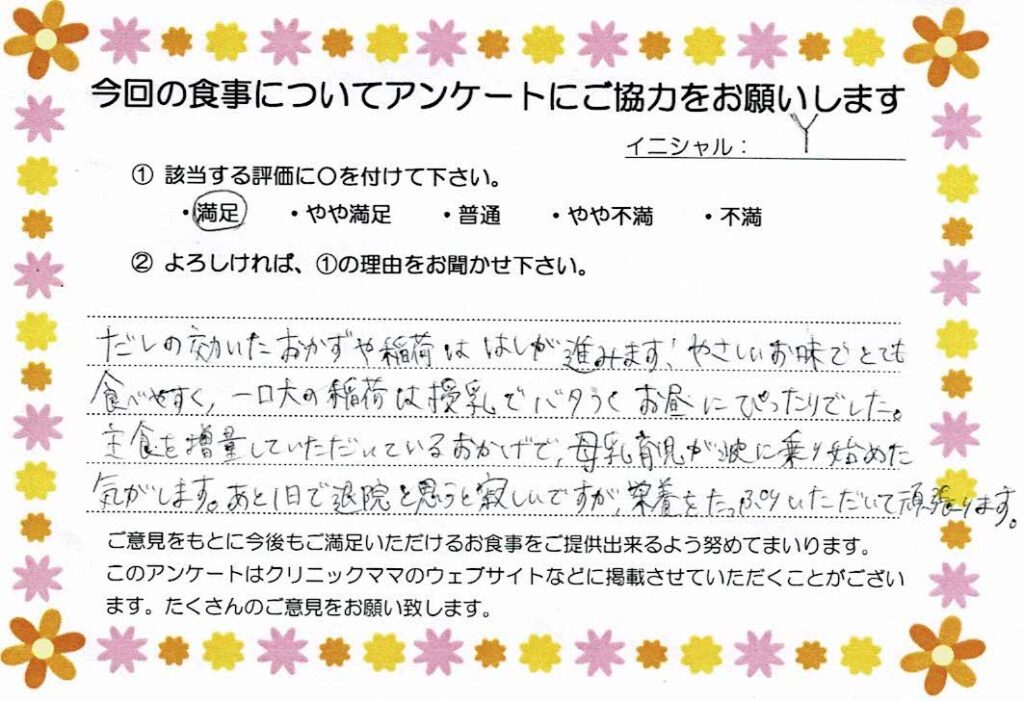 今回の食事についてアンケートにご協力をお願いします
イニシャル： Y
① 該当する評価に〇を付けて下さい。
・満足 ・やや満足 ・普通 ・やや不満 ・不満
② よろしければ、①の理由をお聞かせ下さい。
だしの効いたおかずや稲荷ははしが進みます！やさしいお味でとても
食べやすく、一口大の稲荷は授乳でバタつくお昼にぴったりでした。
主食を増量していただいているおかげで、母乳育児が波に乗り始めた
気がします。あと1日で退院と思うと寂しいですが、栄養をたっぷりいただいて頑張ります。
ご意見をもとに今後もご満足いただけるお食事をご提供出来るよう努めてまいります。
このアンケートはクリニックママのウェブサイトなどに掲載させていただくことがござい
ます。たくさんのご意見をお願い致します。